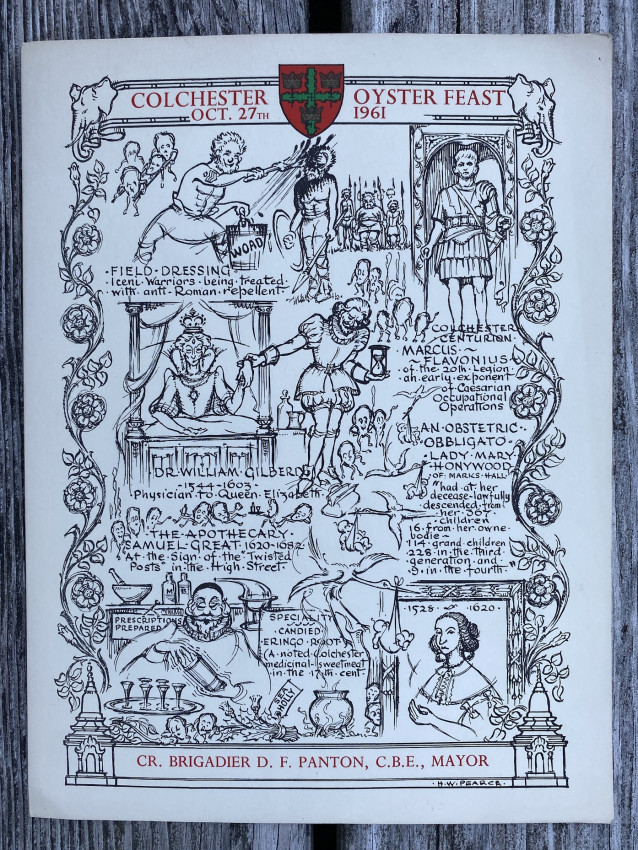 COLCHESTER OYSTER FEAST
OCT. 27TH 1961
WOAD
·FIELD·DRESSING·
·Iceni·Warriors·being·treated·
·with·anti·Roman·repellent·
COLCHESTER
CENTURION·
MARCUS·~
~FLAVONIUS~
·of·the·20th·Legion·
·an·early·exponent
·of·Caesarian
Occupational
Operations
·DR·WILLIAM·GILBERD·
·1544-1603·
Physician·to·Queen·Elizabeth·
·AN·OBSTETRIC·
·OBBLIGATO·
·LADY·MARY·
·HONYWOOD·
·OF·MARKS·HALL·
"had·at·her
decease·lawfully
descended·from
her·367·
·children
16·from·her·owne·
bodie~
114·grand·children
·228·in·the·third·
generation·and·
·9·in·the·fourth·"
·THE·APOTHECARY·
SAMUEL·GREAT·1620-1682
"At·the·Sign·of·the·"Twisted
Posts"·in·the·High·Street·
PRESCRIPTIONS
PREPARED
SPECIALITY
·CANDIED·
·ERINGO·ROOT·
(A·noted·Colchester
medicinal·sweetmeat
in·the·17th·cent·
·1528·~·1620·
CR. BRIGADIER D. F. PANTON, C.B.E., MAYOR
·H·W·PEARCE·